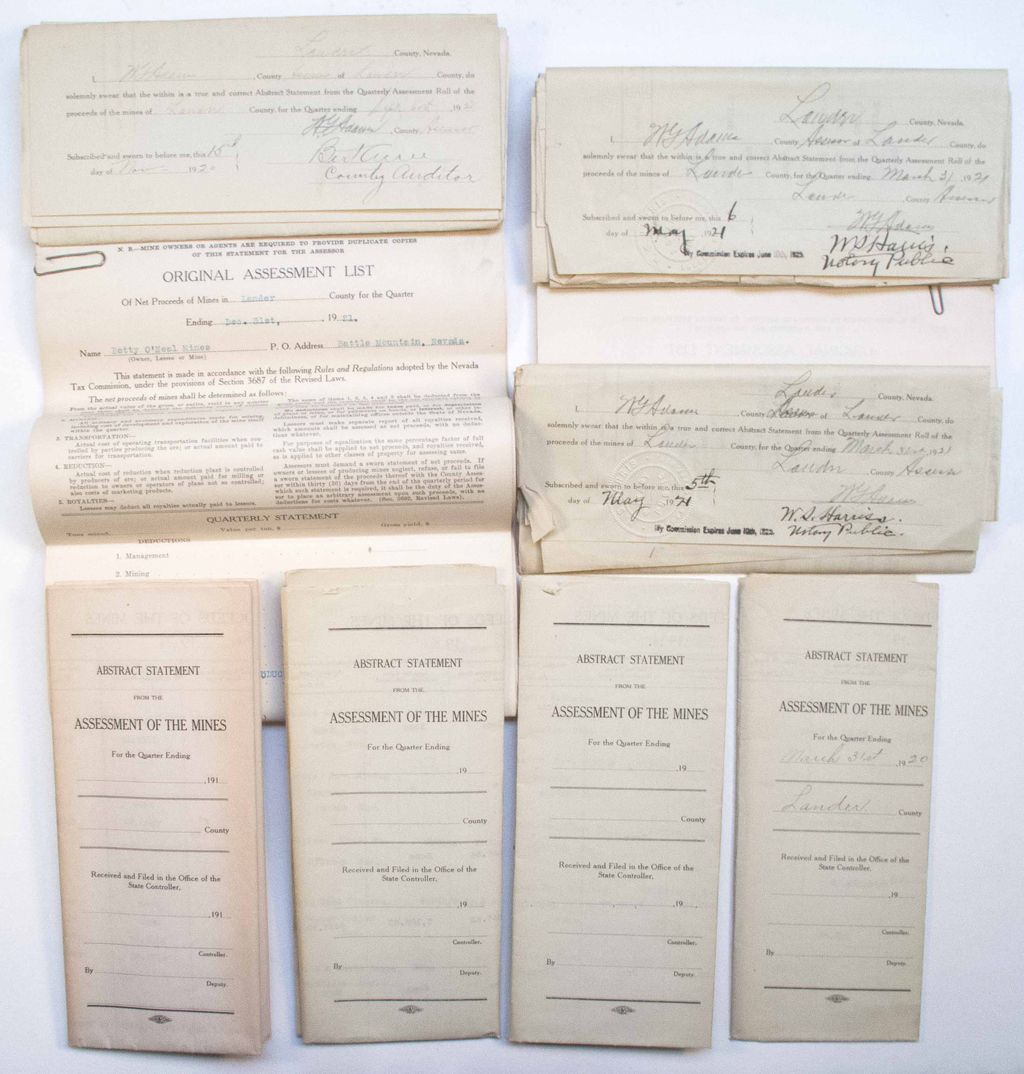 Lander County, Nevada.
I, W G Adams, County of Lander County, do
solemnly swear that the within is a true and correct Abstract Statement from the Quarterly Assessment Roll of the
proceeds of the mines of Lander County, for the Quarter ending 192
W G Adams, County Assessor
Subscribed and sworn to before me, this 15th
day of Nov 1920
County Auditor
N. B.—MINE OWNERS OR AGENTS ARE REQUIRED TO PROVIDE DUPLICATE COPIES
OF THIS STATEMENT FOR THE ASSESSOR
ORIGINAL ASSESSMENT LIST
Of Net Proceeds of Mines in Lander County for the Quarter
Ending Dec. 31st, 1921.
Name Betty O'Neal Mines P. O. Address Battle Mountain, Nevada.
(Owner, Lessee or Mine)
This statement is made in accordance with the following Rules and Regulations adopted by the Nevada
Tax Commission, under the provisions of Section 3687 of the Revised Laws.
The net proceeds of mines shall be determined as follows:
within the quarter.
3. TRANSPORTATION—
Actual cost of operating transportation facilities when con-
trolled by parties producing the ore; or actual amount paid to
carriers for transportation.
4. REDUCTION—
Actual cost of reduction when reduction plant is controlled
by producers of ore; at actual amount paid for milling or
reduction to owners or operators of plant not so controlled;
also costs of marketing products.
5. ROYALTIES—
Lessees may deduct all royalties actually paid to lessors.
Lessors must make separate report of all royalties received,
which amounts shall be assessed as net proceeds, with no deduc-
tions whatever.
For purposes of equalization the same percentage factor of full
cash value shall be applied to net proceeds, and royalties received,
as is applied to other classes of property for assessing same.
Assessors must demand a sworn statement of net proceeds. If
owners or lessees of producing mines neglect, refuse, or fail to file
a sworn statement of the proceeds thereof with the County Asses-
sor within thirty (30) days from the end of the quarterly period for
which such statement is required, it shall be the duty of the Asses-
sor to place an arbitrary assessment upon such proceeds, with no
deductions for costs whatever. (Sec. 3692, Revised Laws).
QUARTERLY STATEMENT
Tons mined, Value per ton, $ Gross yield, $
DEDUCTIONS
1. Management
2. Mining
Lander County, Nevada.
I, W G Adams County Assessor of Lander County, do
solemnly swear that the within is a true and correct Abstract Statement from the Quarterly Assessment Roll of the
proceeds of the mines of Lander County, for the Quarter ending March 31, 1921
Lander County Assessor
Subscribed and sworn to before me, this 6
day of May 1921
W G Adams
My Commission Expires June 10th, 1925.
W. S. Harris.
Notary Public
Lander County, Nevada.
I, W G Adams, County of Lander County, do
solemnly swear that the within is a true and correct Abstract Statement from the Quarterly Assessment Roll of the
proceeds of the mines of Lander County, for the Quarter ending March 31st, 1921
Lander, County Assessor
Subscribed and sworn to before me, this 5th
day of May 1921
W G Adams
My Commission Expires June 10th, 1925.
W. S. Harris.
Notary Public.
ABSTRACT STATEMENT
FROM THE
ASSESSMENT OF THE MINES
For the Quarter Ending
,191
County
Received and Filed in the Office of the
State Controller,
,191
Controller.
By
Deputy.
ABSTRACT STATEMENT
FROM THE
ASSESSMENT OF THE MINES
For the Quarter Ending
,19
County
Received and Filed in the Office of the
State Controller,
,19
Controller.
By
Deputy.
ABSTRACT STATEMENT
FROM THE
ASSESSMENT OF THE MINES
For the Quarter Ending
,19
County
Received and Filed in the Office of the
State Controller,
,19
Controller.
By
Deputy.
ABSTRACT STATEMENT
FROM THE
ASSESSMENT OF THE MINES
For the Quarter Ending
March 31st ,1920
Lander County
Received and Filed in the Office of the
State Controller,
,19
Controller.
By
Deputy.